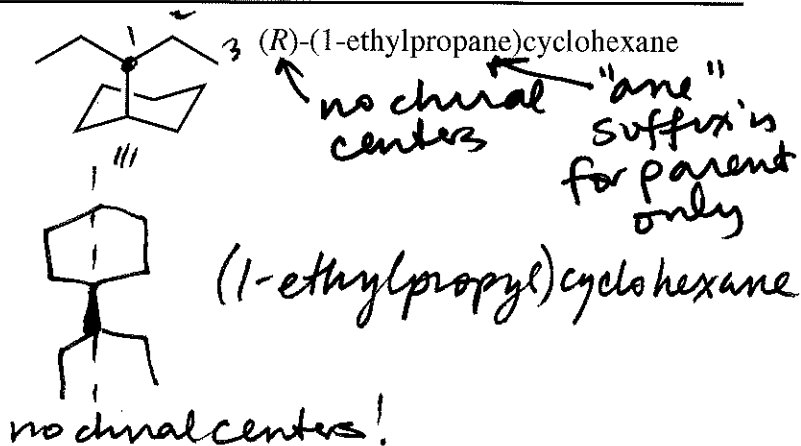 1 2 3 (R)-(1-ethylpropane)cyclohexane
no chiral
centers
"ane"
suffix is
for parent
only
(1-ethylpropyl)cyclohexane
no chiral centers!